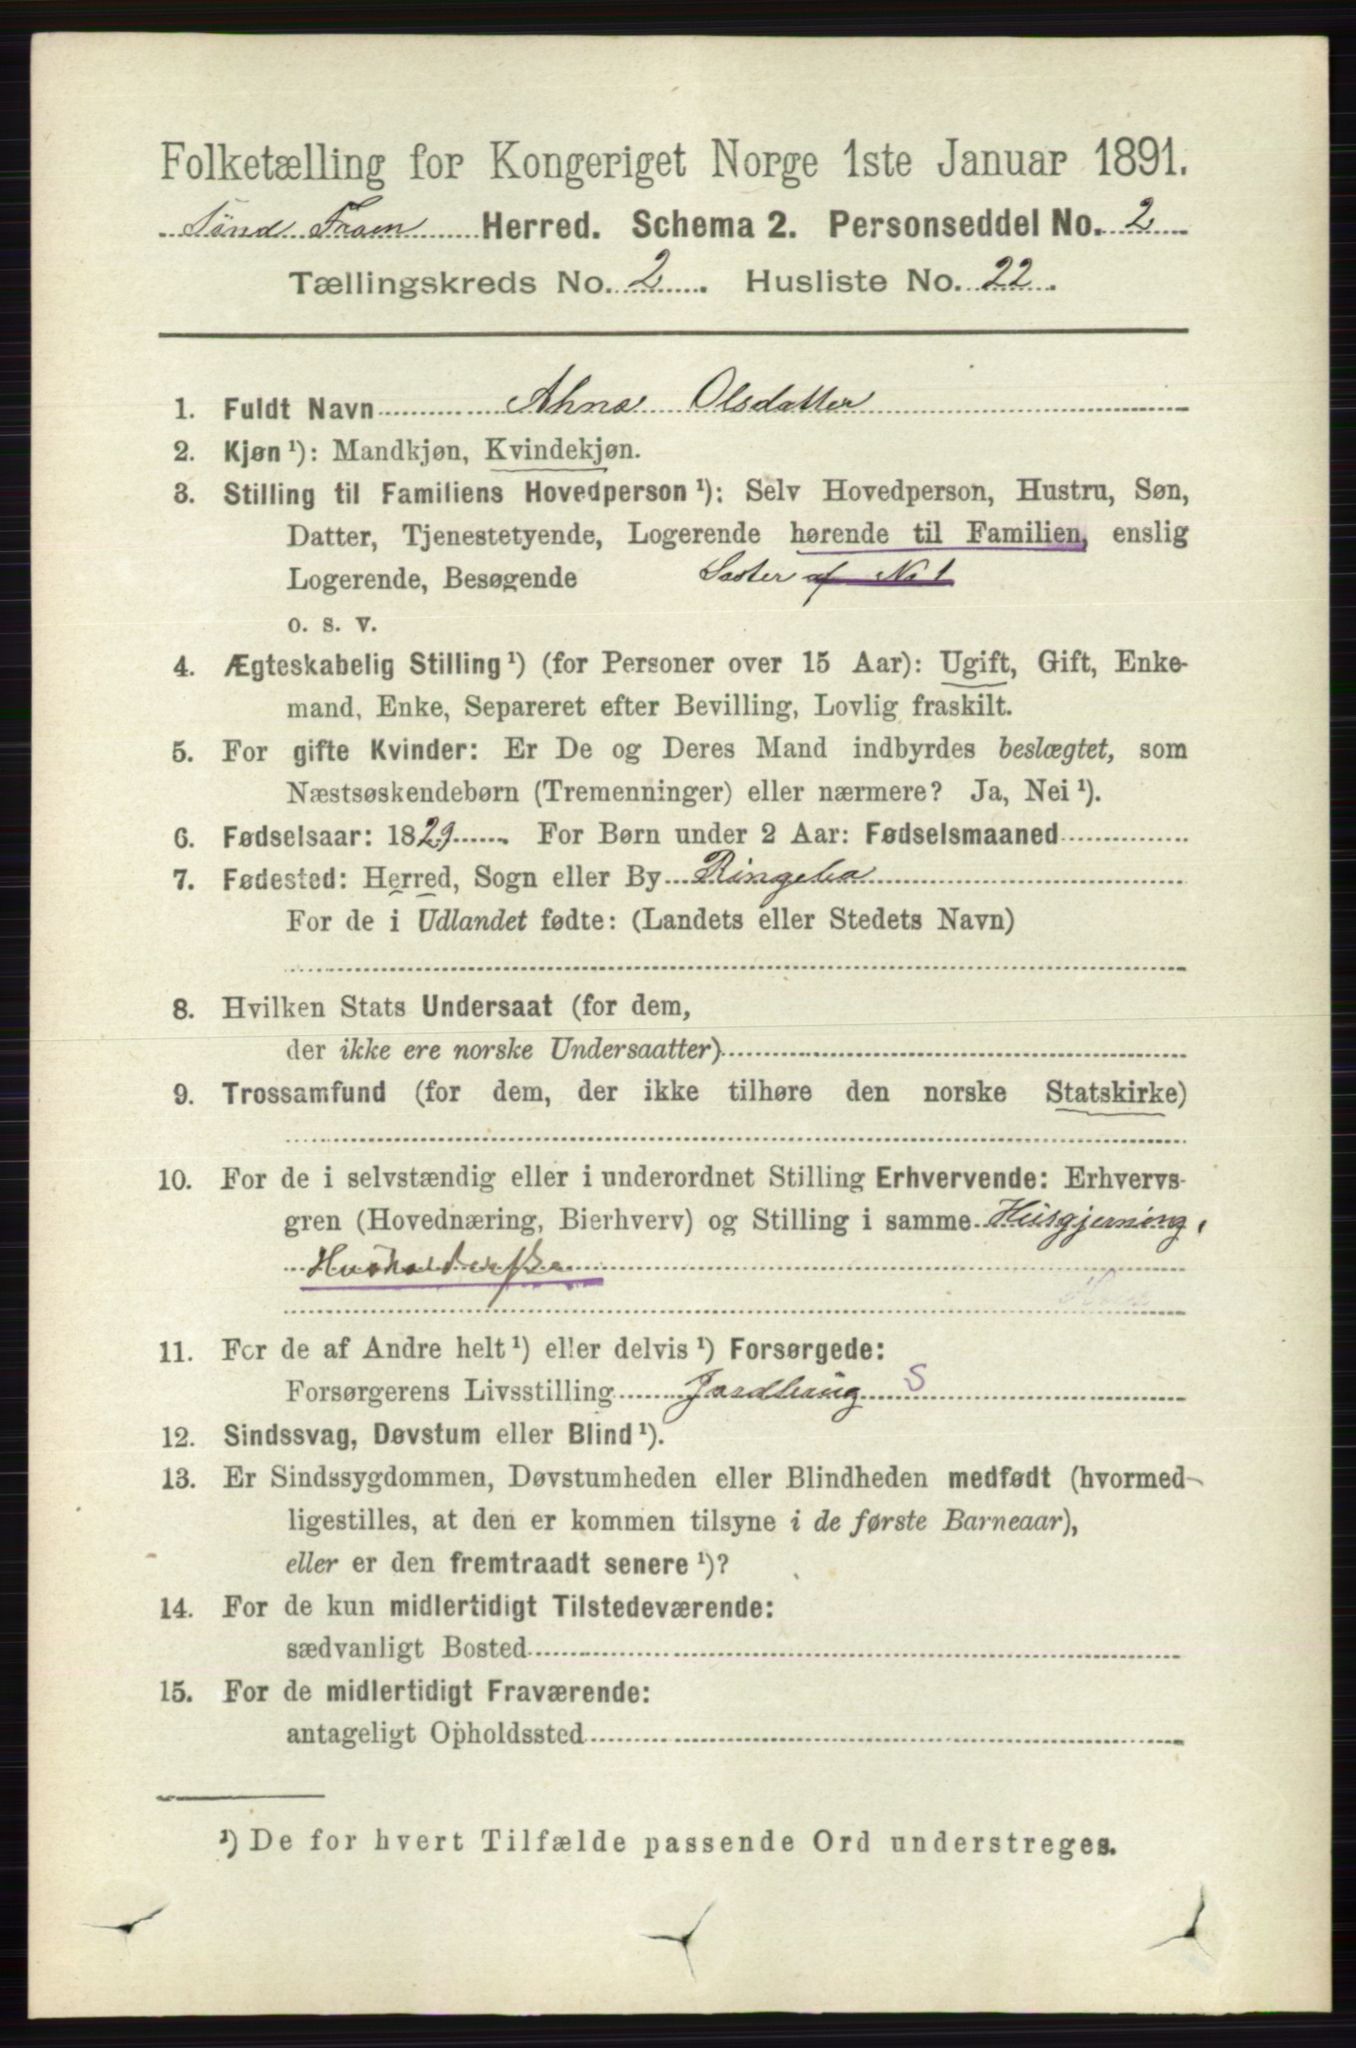 Folketælling for Kongeriget Norge 1ste Januar 1891.
Sönd Fron Herred. Schema 2. Personseddel No. 2
Tællingskreds No. 2. Husliste No. 22.
1. Fuldt Navn Ahne Olsdatter
2. Kjøn ¹): Mandkjøn, Kvindekjøn.
3. Stilling til Familiens Hovedperson ¹): Selv Hovedperson, Hustru, Søn,
Datter, Tjenestetyende, Logerende hørende til Familien, enslig
Logerende, Besøgende Søster af No 1
o. s. v.
4. Ægteskabelig Stilling ¹) (for Personer over 15 Aar): Ugift, Gift, Enke-
mand, Enke, Separeret efter Bevilling, Lovlig fraskilt.
5. For gifte Kvinder: Er De og Deres Mand indbyrdes beslægtet, som
Næstsøskendebørn (Tremenninger) eller nærmere? Ja, Nei ¹).
6. Fødselsaar: 1829. For Børn under 2 Aar: Fødselsmaaned
7. Fødested: Herred, Sogn eller By Ringebu
For de i Udlandet fødte: (Landets eller Stedets Navn)
8. Hvilken Stats Undersaat (for dem,
der ikke ere norske Undersaatter)
9. Trossamfund (for dem, der ikke tilhøre den norske Statskirke)
10. For de i selvstændig eller i underordnet Stilling Erhvervende: Erhvervs-
gren (Hovednæring, Bierhverv) og Stilling i samme Husgjerning,
Husholderske
11. For de af Andre helt ¹) eller delvis ¹) Forsørgede:
Forsørgerens Livsstilling Jordbrug S
12. Sindssvag, Døvstum eller Blind ¹).
13. Er Sindssygdommen, Døvstumheden eller Blindheden medfødt (hvormed-
ligestilles, at den er kommen tilsyne i de første Barneaar),
eller er den fremtraadt senere ¹)?
14. For de kun midlertidigt Tilstedeværende:
sædvanligt Bosted
15. For de midlertidigt Fraværende:
antageligt Opholdssted
¹) De for hvert Tilfælde passende Ord understreges.